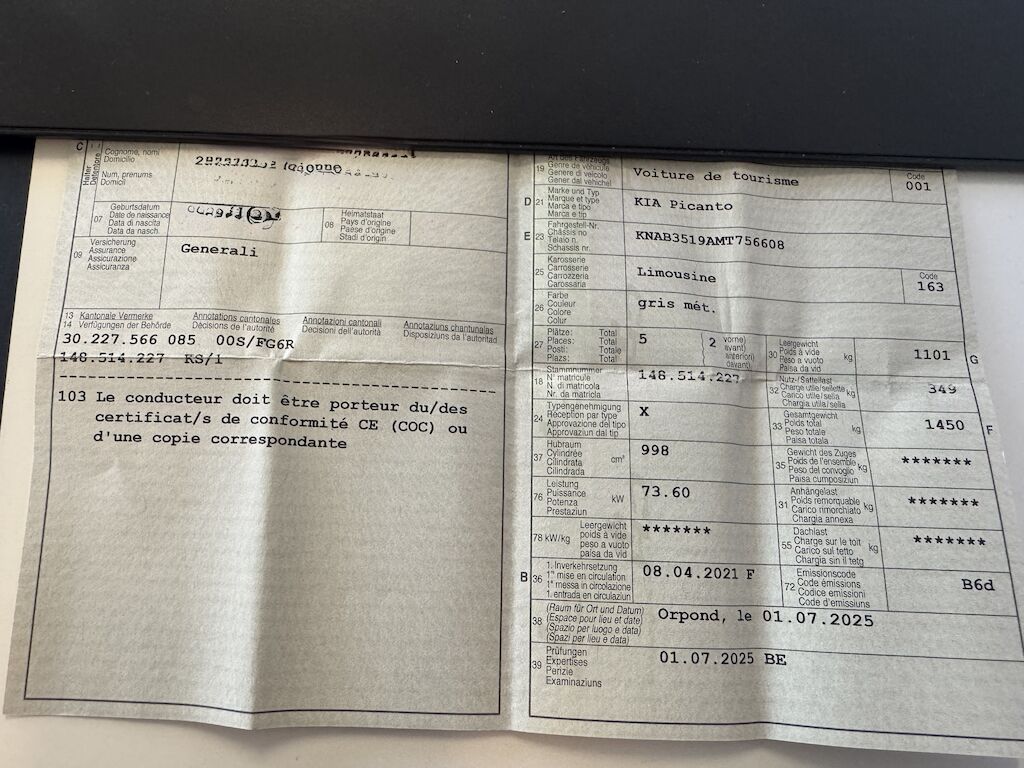 C
Halter
Detentore
Cognome, nomi
Domicilio
Num, prenums
Domicil
07
Geburtsdatum
Date de naissance
Data di nascita
Data da nasch.
08
Heimatstaat
Pays d'origine
Paese d'origine
Stadi d'origin
09
Versicherung
Assurance
Assicurazione
Assicuranza
Generali
13 Kantonale Vermerke Annotations cantonales Annotazioni cantonali Annotaziuns chantunalas
14 Verfügungen der Behörde Décisions de l'autorité Decisioni dell'autorità Disposiziuns da l'autoritad
30.227.566 085 00S/FG6R
148.514.227 RS/1
103 Le conducteur doit être porteur du/des
certificat/s de conformité CE (COC) ou
d'une copie correspondante
19
Art des Fahrzeugs
Genre de véhicule
Genere di veicolo
Gener dal vehichel
Voiture de tourisme
Code
001
D 21
Marke und Typ
Marque et type
Marca e tipo
Marca e tip
KIA Picanto
E 23
Fahrgestell-Nr.
Châssis no
Telaio n.
Schassis nr.
KNAB3519AMT756608
25
Karosserie
Carrosserie
Carrozzeria
Carossaria
Limousine
Code
163
26
Farbe
Couleur
Colore
Colur
gris mét.
27
Plätze: Total
Places: Total
Posti: Totale
Plazs: Total
5
2
vorne)
avant)
anteriori)
davant)
30
Leergewicht
Poids à vide
Peso a vuoto
Paisa da vid
kg
1101 G
18
Stammnummer
N° matricule
N. di matricola
Nr. da matricla
148.514.227
32
Nutz-/Sattellast
Charge utile/sellette
Carico utile/sella
Chargia utila/sella
kg
349
24
Typengenehmigung
Réception par type
Approvazione del tipo
Approvaziun dal tip
X
33
Gesamtgewicht
Poids total
Peso totale
Paisa totala
kg
1450 F
37
Hubraum
Cylindrée
Cilindrata
Cilindrada
cm³
998
35
Gewicht des Zuges
Poids de l'ensemble
Peso del convoglio
Paisa cumposiziun
kg
*******
76
Leistung
Puissance
Potenza
Prestaziun
kW
73.60
31
Anhängelast
Poids remorquable
Carico rimorchiato
Chargia annexa
kg
*******
78 kW/kg
Leergewicht
poids à vide
peso a vuoto
paisa da vid
*******
55
Dachlast
Charge sur le toit
Carico sul tetto
Chargia sin il tetg
kg
*******
B 36
1. Inverkehrsetzung
1re mise en circulation
1a messa in circolazione
1. entrada en circulaziun
08.04.2021 F
72
Emissionscode
Code émissions
Codice emissioni
Code d'emissiuns
B6d
38
(Raum für Ort und Datum)
(Espace pour lieu et date)
(Spazio per luogo e data)
(Spazi per lieu e data)
Orpond, le 01.07.2025
39
Prüfungen
Expertises
Perizie
Examinaziuns
01.07.2025 BE